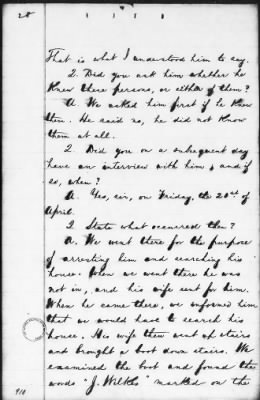 28
That is what I understood him to say.
Q. Did you ask him whether he
knew these persons, or either of them?
A. We asked him first if he knew
them. He said no, he did not know
them at all.
Q. Did you on a subsequent day
have an interview with him; and if
so, when?
A. Yes, sir, on Friday, the 21st of
April.
Q. State what occurred then?
A. We went there for the purpose
of arresting him and searching his
house. When we went there he was
not in, and his wife sent for him.
When he came there, we informed him
that we would have to search his
house. His wife then went up stairs
and brought a boot down stairs. We
examined the boot and found the
words "J. Wilkes" marked on the